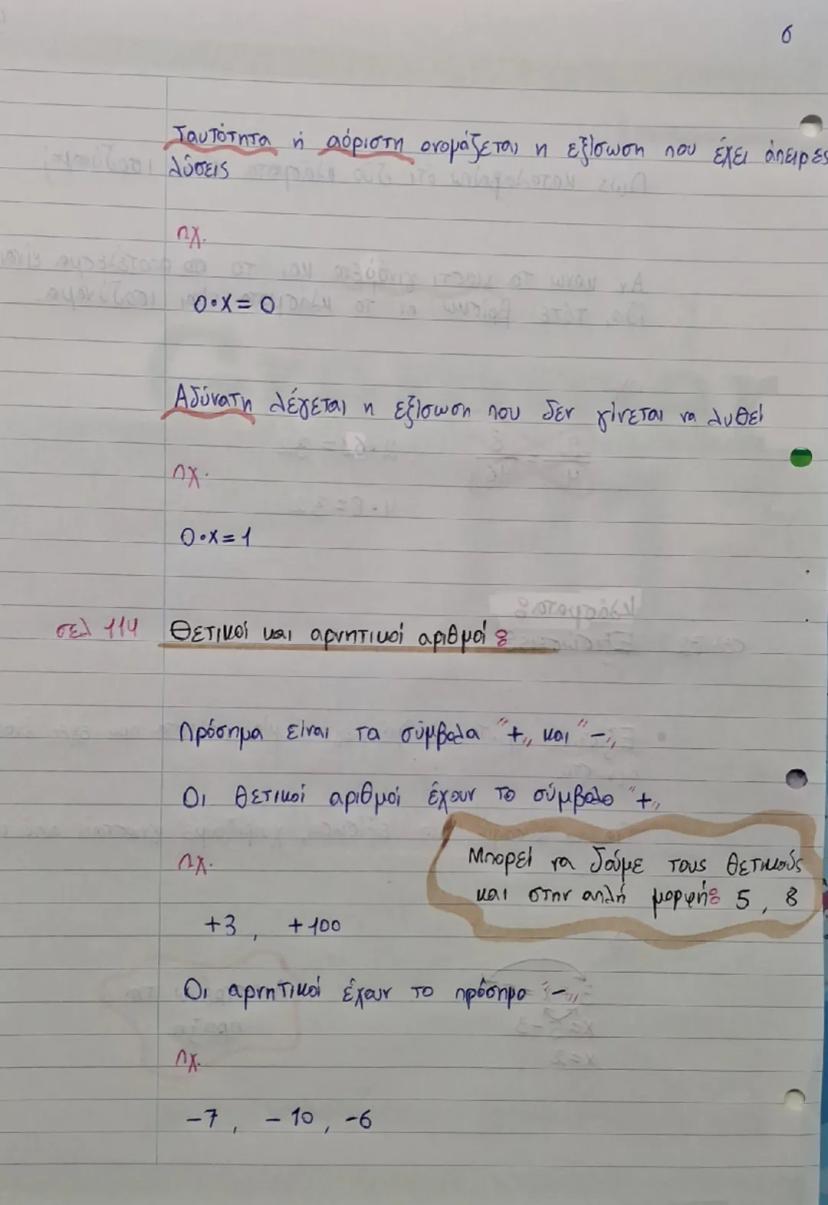 6
Ταυτότητα ή αόριστη ονομάζεται η εξίσωση που έχει άπειρες
λύσεις
πχ.
0·x=0
Αδύνατη λέγεται η εξίσωση που δεν γίνεται να λυθεί
πχ.
0·x=1
σελ 114 Θετικοί και αρνητικοί αριθμοί:
Πρόσημα είναι τα σύμβολα "+„ και "-„
Οι θετικοί αριθμοί έχουν το σύμβολο "+„
πχ.
Μπορεί να δούμε τους θετικούς
και στην απλή μορφή: 5, 8
+3, +100
Οι αρνητικοί έχουν το πρόσημο "-„
πχ.
-7, -10, -6